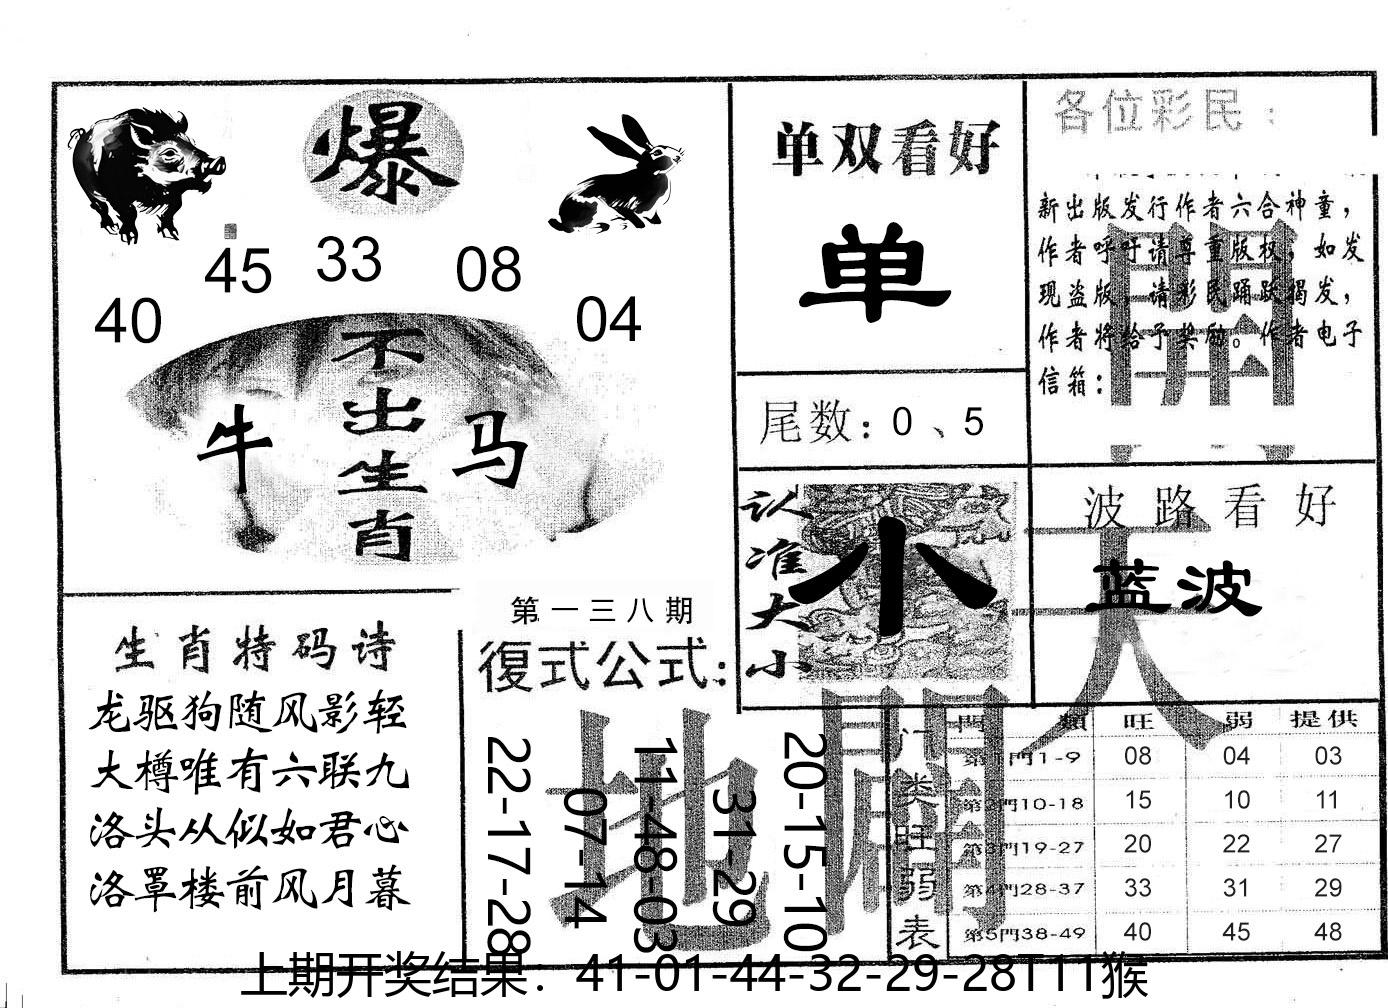 爆
45 33 08
40 04
不出生肖
牛 马
单双看好
单
尾数：0、5
各位彩民：
新出版发行作者六合神童，
作者呼吁请尊重版权，如发
现盗版，请彩民踊跃揭发，
作者将给予奖励。作者电子
信箱：
認准大小
小
波路看好
蓝波
天
地
開
開
生肖特码诗
龙驱狗随风影轻
大樽唯有六联九
洛头从似如君心
洛罩楼前风月暮
第一三八期
復式公式：
22-17-28
07-14
11-48-03
31-29
20-15-10
门类旺弱表
門類 旺 弱 提供
第1門1-9 08 04 03
第2門10-18 15 10 11
第3門19-27 20 22 27
第4門28-37 33 31 29
第5門38-49 40 45 48
上期开奖结果：41-01-44-32-29-28T11猴